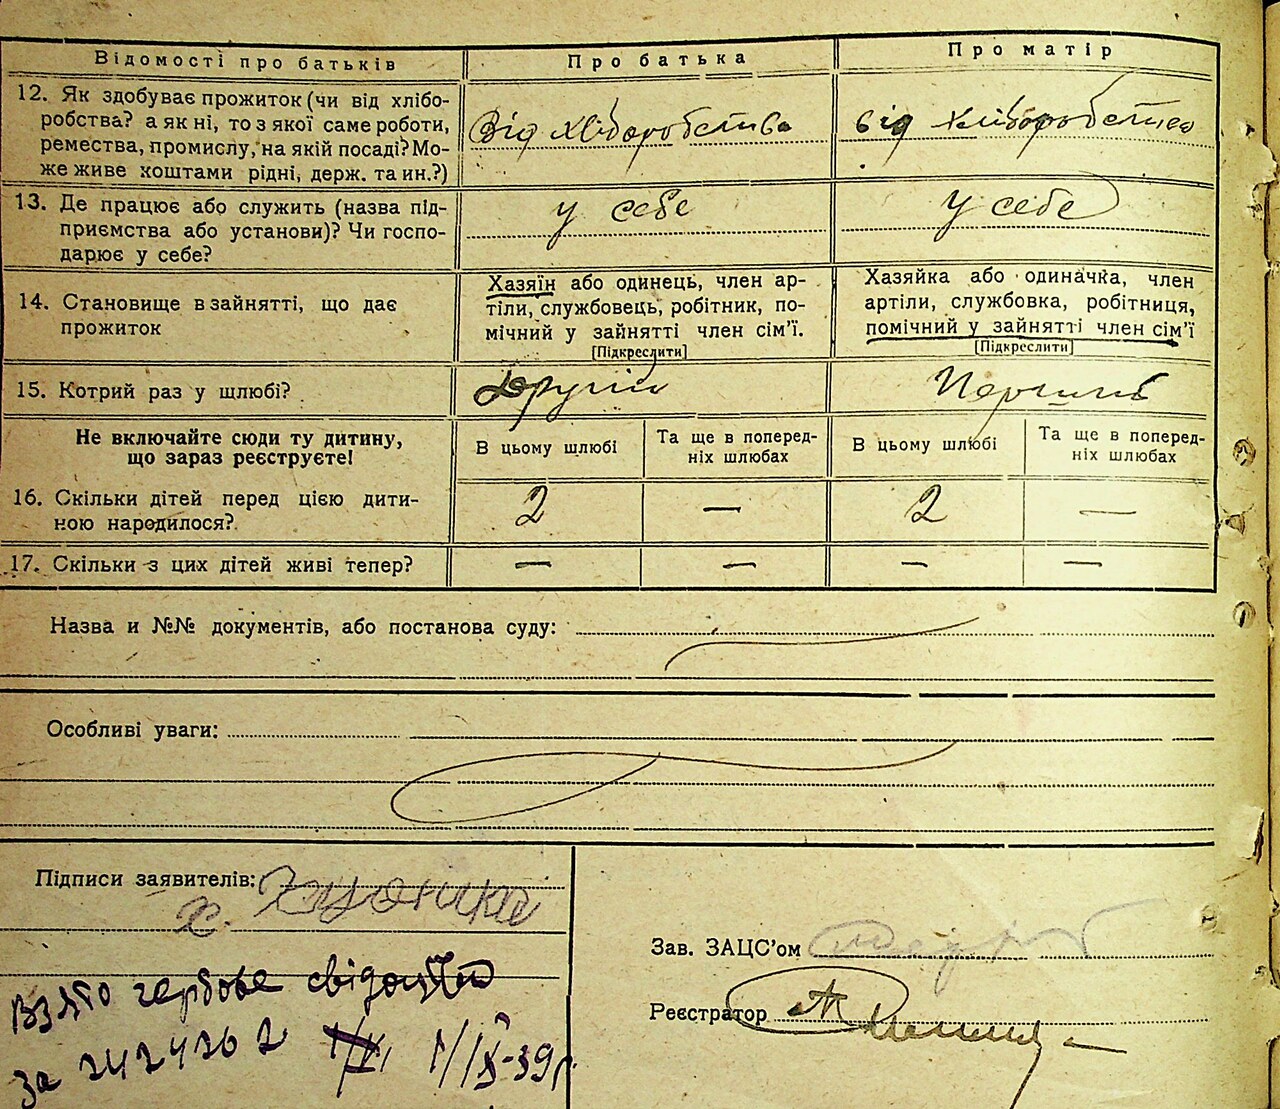 Відомості про батьків Про батька Про матір
12. Як здобуває прожиток (чи від хлібо-
робства? а як ні, то з якої саме роботи,
ремества, промислу, на якій посаді? Мо-
же живе коштами рідні, держ. та ин.?)
Від хліборобства від хліборобства
13. Де працює або служить (назва під-
приємства або установи)? Чи госпо-
дарює у себе?
у себе у себе
14. Становище в зайнятті, що дає
прожиток
Хазяїн або одинець, член ар-
тіли, службовець, робітник, по-
мічний у зайнятті член сім'ї.
[Підкреслити]
Хазяйка або одиначка, член
артіли, службовка, робітниця,
помічний у зайнятті член сім'ї
[Підкреслити]
15. Котрий раз у шлюбі? Другий Перший
Не включайте сюди ту дитину,
що зараз реєструєте!
В цьому шлюбі
Та ще в поперед-
ніх шлюбах
В цьому шлюбі
Та ще в поперед-
ніх шлюбах
16. Скільки дітей перед цією дити-
ною народилося?
2 — 2 —
17. Скільки з цих дітей живі тепер? — — — —
Назва и №№ документів, або постанова суду:
Особливі уваги:
Підписи заявителів:
х.
Взято гербове свідоцтво
за 2424262 1/IX-39р.
Зав. ЗАЦС'ом
Реєстратор